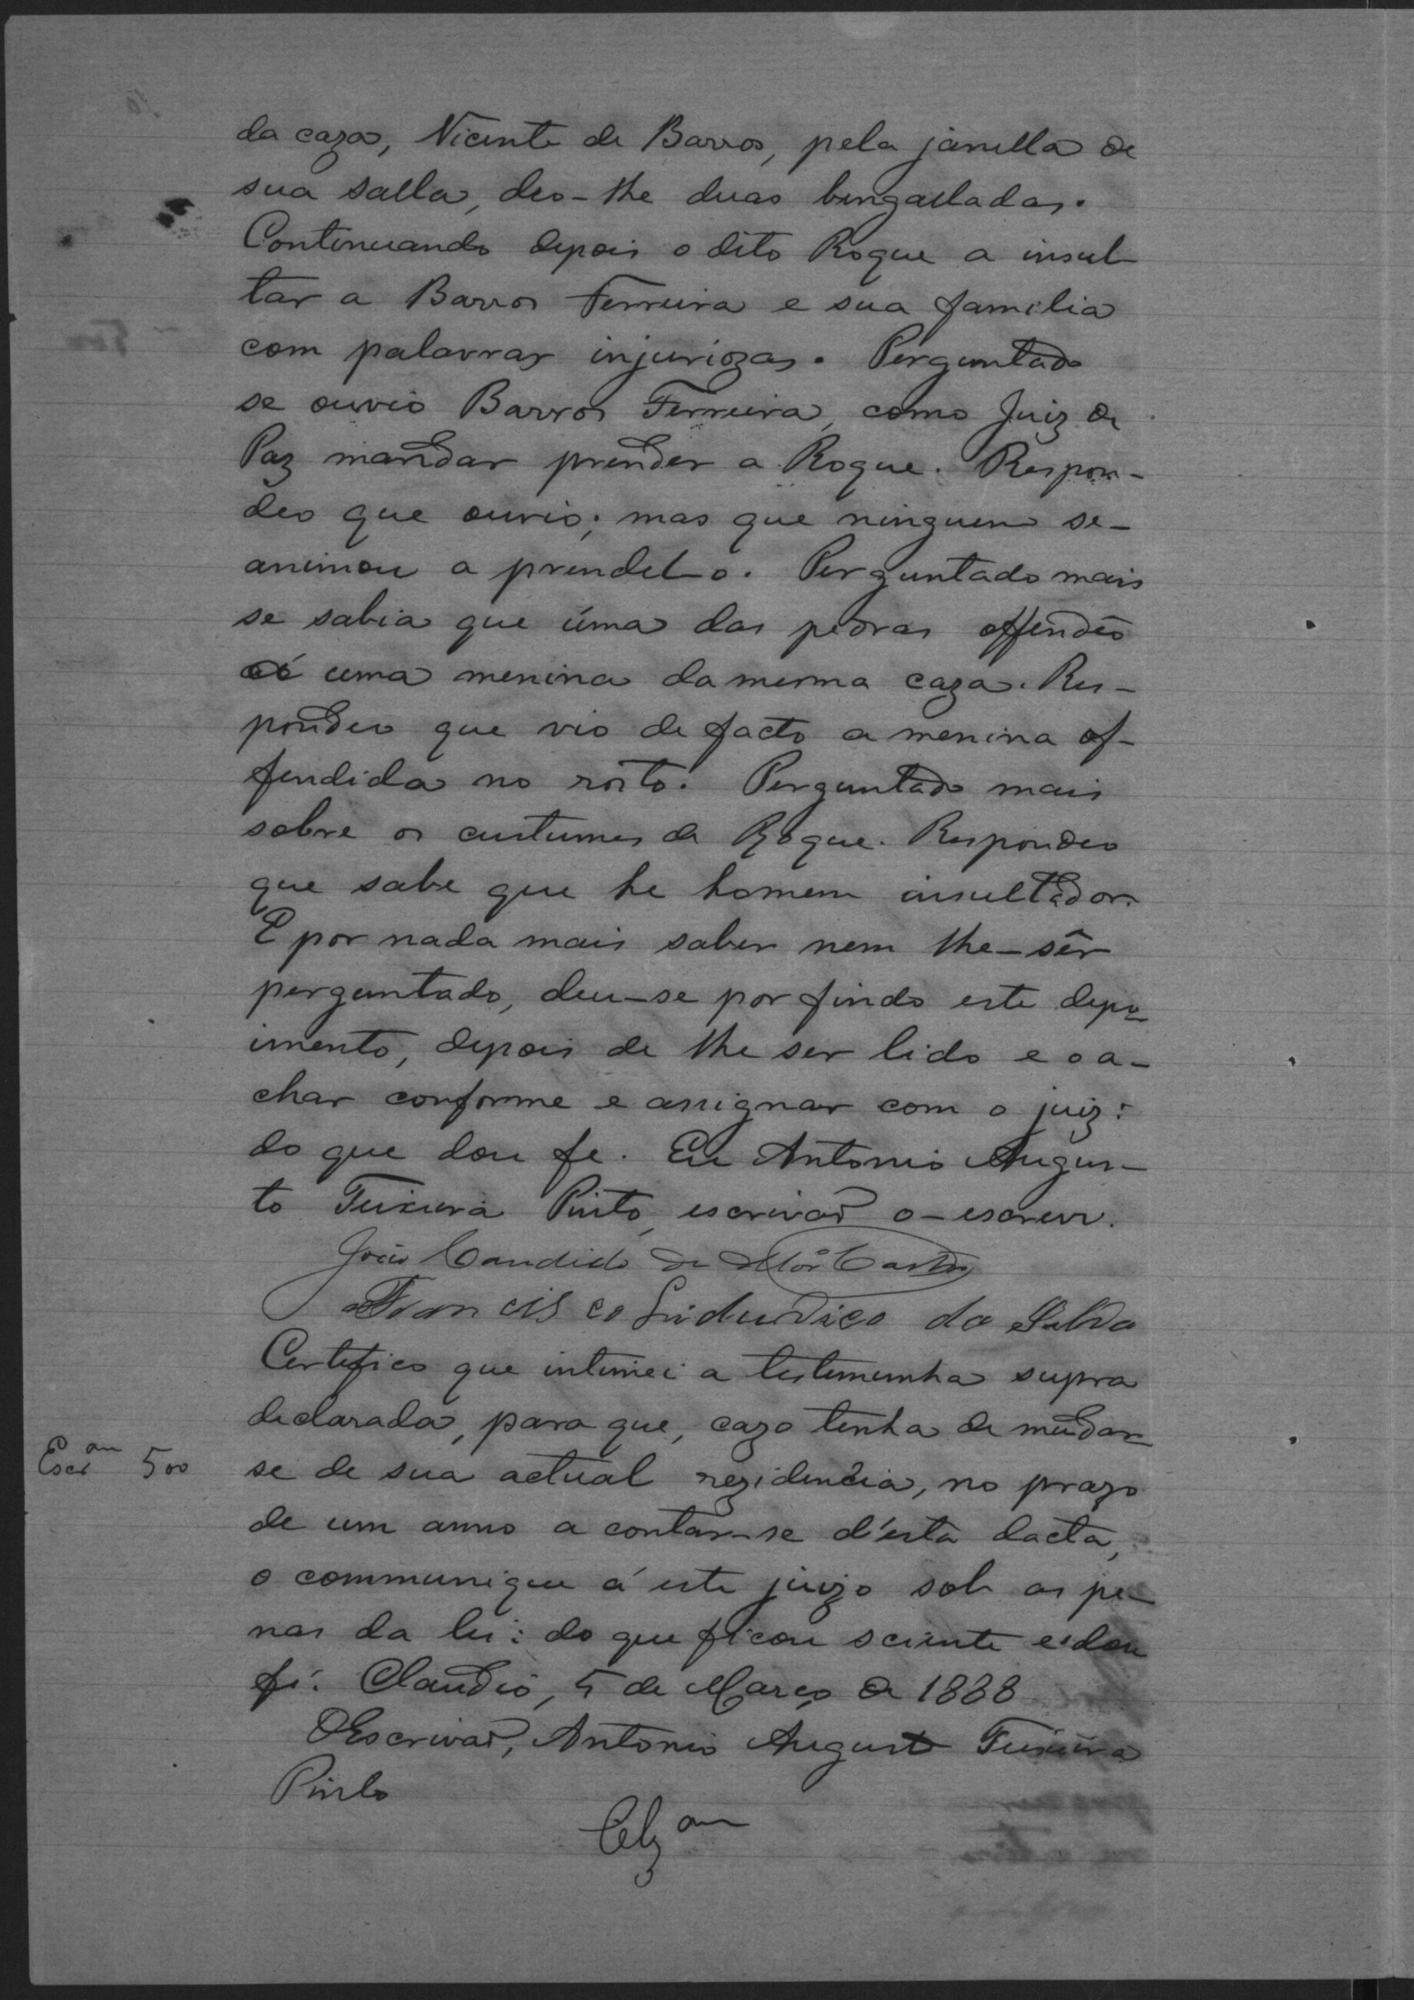 da caza, Vicente de Barros, pela janella de
sua salla, deo-lhe duas bengalladas.
Continuando depois o dito Roque a insul-
tar a Barros Ferreira e sua familia
com palavras injuriozas. Perguntado
se ouvio Barros Ferreira, como Juiz de
Paz mandar prender a Roque. Respon-
deo que ouvio; mas que ninguem se-
animou a prendel-o. Perguntado mais
se sabia que úma das pedras offendêo
á uma menina da mesma caza. Res-
pondeo que vio de facto a menina of-
fendida no rosto. Perguntado mais
sobre os custumes de Roque. Respondeo
que sabe que he homem insultador.
E por nada mais saber nem lhe-sêr
perguntado, deu-se por findo este depo-
imento, depois de lhe ser lido e o a-
char conforme e assignar com o juiz:
do que dou fe. Eu Antonio Augus-
to Teixeira Pinto, escrivaõ o-escrevi.
João Candido de Castro
Francisco da Silva
Certifico que intimei a testemunha supra
declarada, para que, cazo tenha de mudar-
Escram 500
se de sua actual rezidencia, no prazo
de um anno a contar-se d'esta dacta,
o communique á este juizo sob as pe-
nas da lei: do que ficou sciente e dou
fé. Claudio, 5 de Março de 1888
O Escrivaõ, Antonio Augusto Teixeira
Pinto